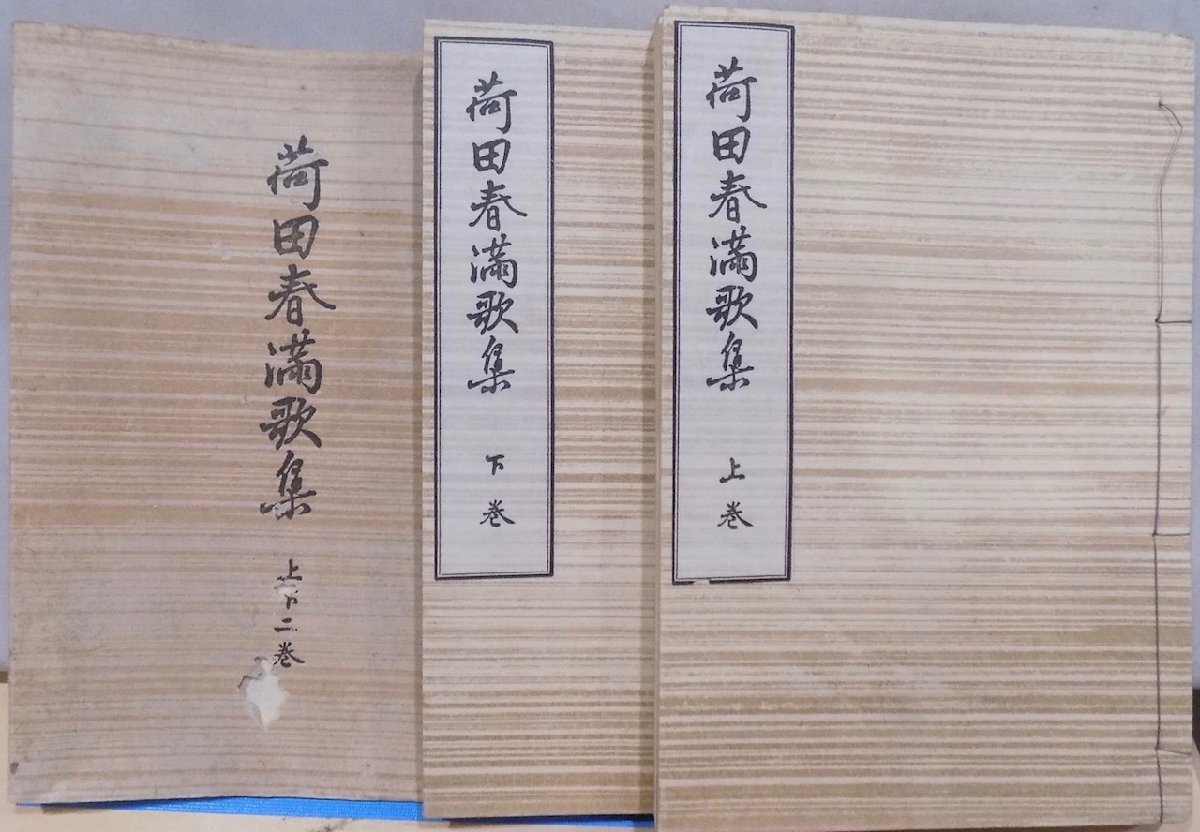 荷田春満歌集 上巻
荷田春満歌集 下巻
荷田春満歌集 上下二巻